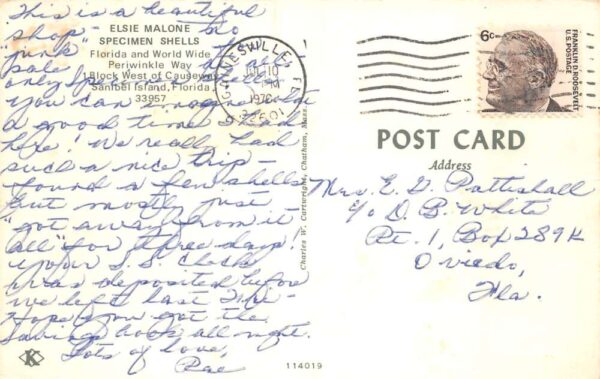 This is a beautiful
shop - no
"junk" for
sale at all
only specimen shells.
You can imagine
a good time I had
here! We really had
such a nice trip -
found a few shells
but mostly just
"got away from it
all" for three days!
Your S.S. Check
was deposited before
we left last Tue -
Hope you got the
savings book all right.
Lots of love,
Rae
ELSIE MALONE
SPECIMEN SHELLS
Florida and World Wide
Periwinkle Way
1 Block West of Causeway
Sanibel Island, Florida
33957
Charles W. Cartwright, Chatham, Mass.
K
114019
GAINESVILLE, FLA
10
1970
32601
6c
FRANKLIN D. ROOSEVELT
U.S. POSTAGE
POST CARD
Address
Mrs. E. G. Pattishall
c/o D. B. White
Rt. 1, Box 289K
Oviedo,
Fla.